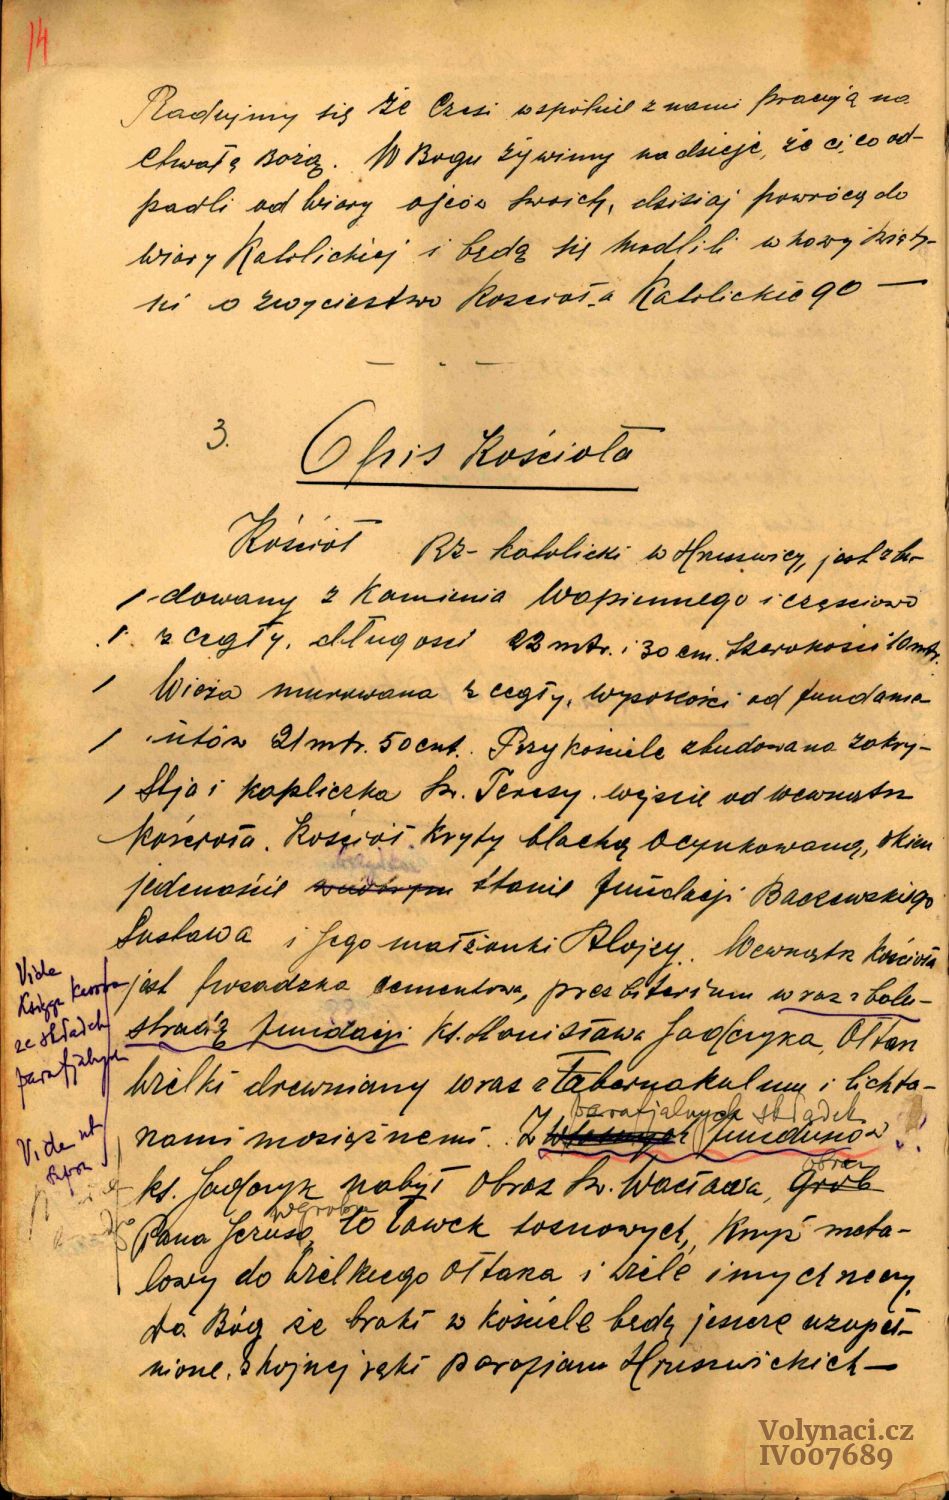 14
Radujmy się że Czesi wspólnie z nami pracują na
chwałę Bożą. W Bogu żywimy nadzieję, że ci, co od-
padli od wiary ojców swoich, dzisiaj powrócą do
wiary Katolickiej i będą się modlili w nowej świąty-
ni o zwycięstwo Kościoła Katolickiego —
3. Opis Kościoła
Kościół Rz-katolicki w Hruszwicy, jest zbu-
dowany z Kamienia Wapiennego i częściowo
z cegły, długości 22 mtr. i 30 cm. Szerokości 10 mtr.
Wieża murowana z cegły, wysokości od fundame
ntów 21 mtr. 50 cnt. Przy kościele zbudowana zakry-
stja i kapliczka Św. Teresy. wejście od wewnątrz
Kościoła. Kościół Kryty blachą ocynkowaną, okien
jedenaście stanie fundacji Baczewskiego
Sustawa i Jego małżonki Alojzy. Wewnątrz Kościoła
jest posadzka cementowa, prezbiterium wraz z balu-
stradą fundacji Ks. Stanisława Jadczyka, Ołtarz
Wielki drewniany wraz z Tabernakulum i lichta-
rzami mosiężnemi.
parafjalnych składek
Z funduszów
ks. Jadczyk nabył Obraz Św. Wacława, Grób
obraz
Pana Jezusa, 10 ławek sosnowych, Krzyż meta-
w grobie
lowy do Wielkiego Ołtarza i wiele innych rzeczy,
da Bóg że braki w kościele będą jeszcze uzupeł-
nione, z hojnej ręki parafjan Hruszwickich —
Vide
Księga Kasowa
ze składek
parafjalnych
Vide ut
supra
Volynaci.cz
IV007689